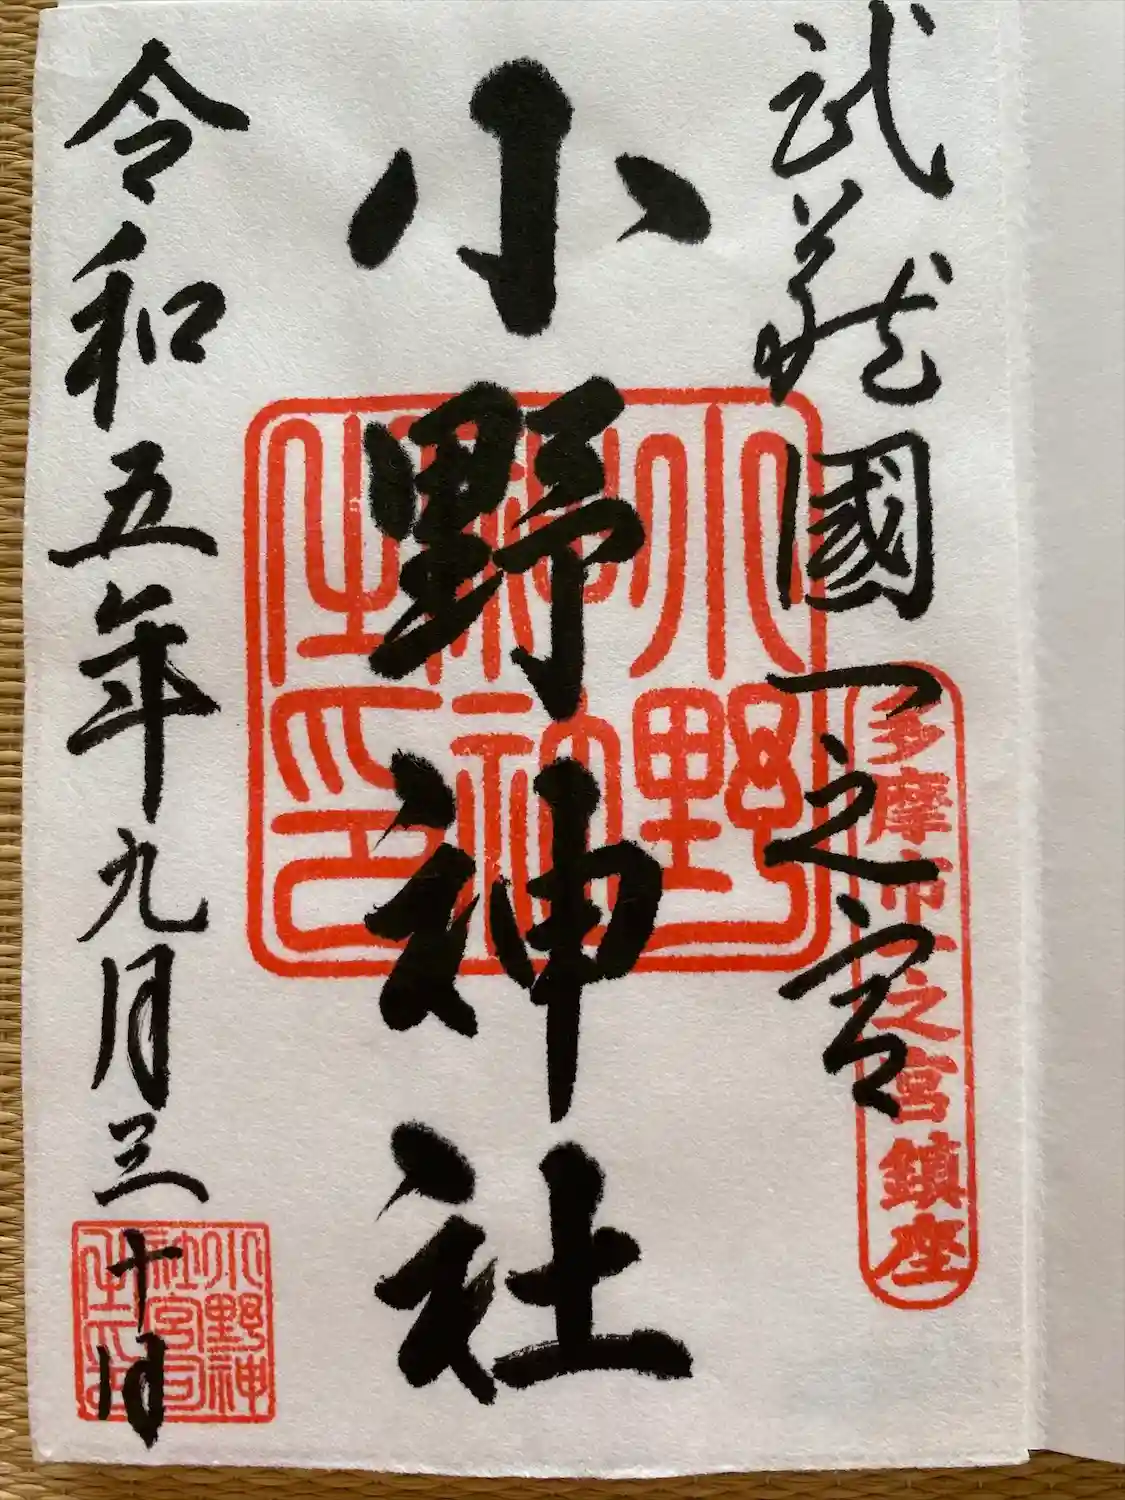 武蔵國一之宮
多摩市一之宮鎮座
小野神社
小野神社之印
令和五年九月三十日
小野神社宮司之印